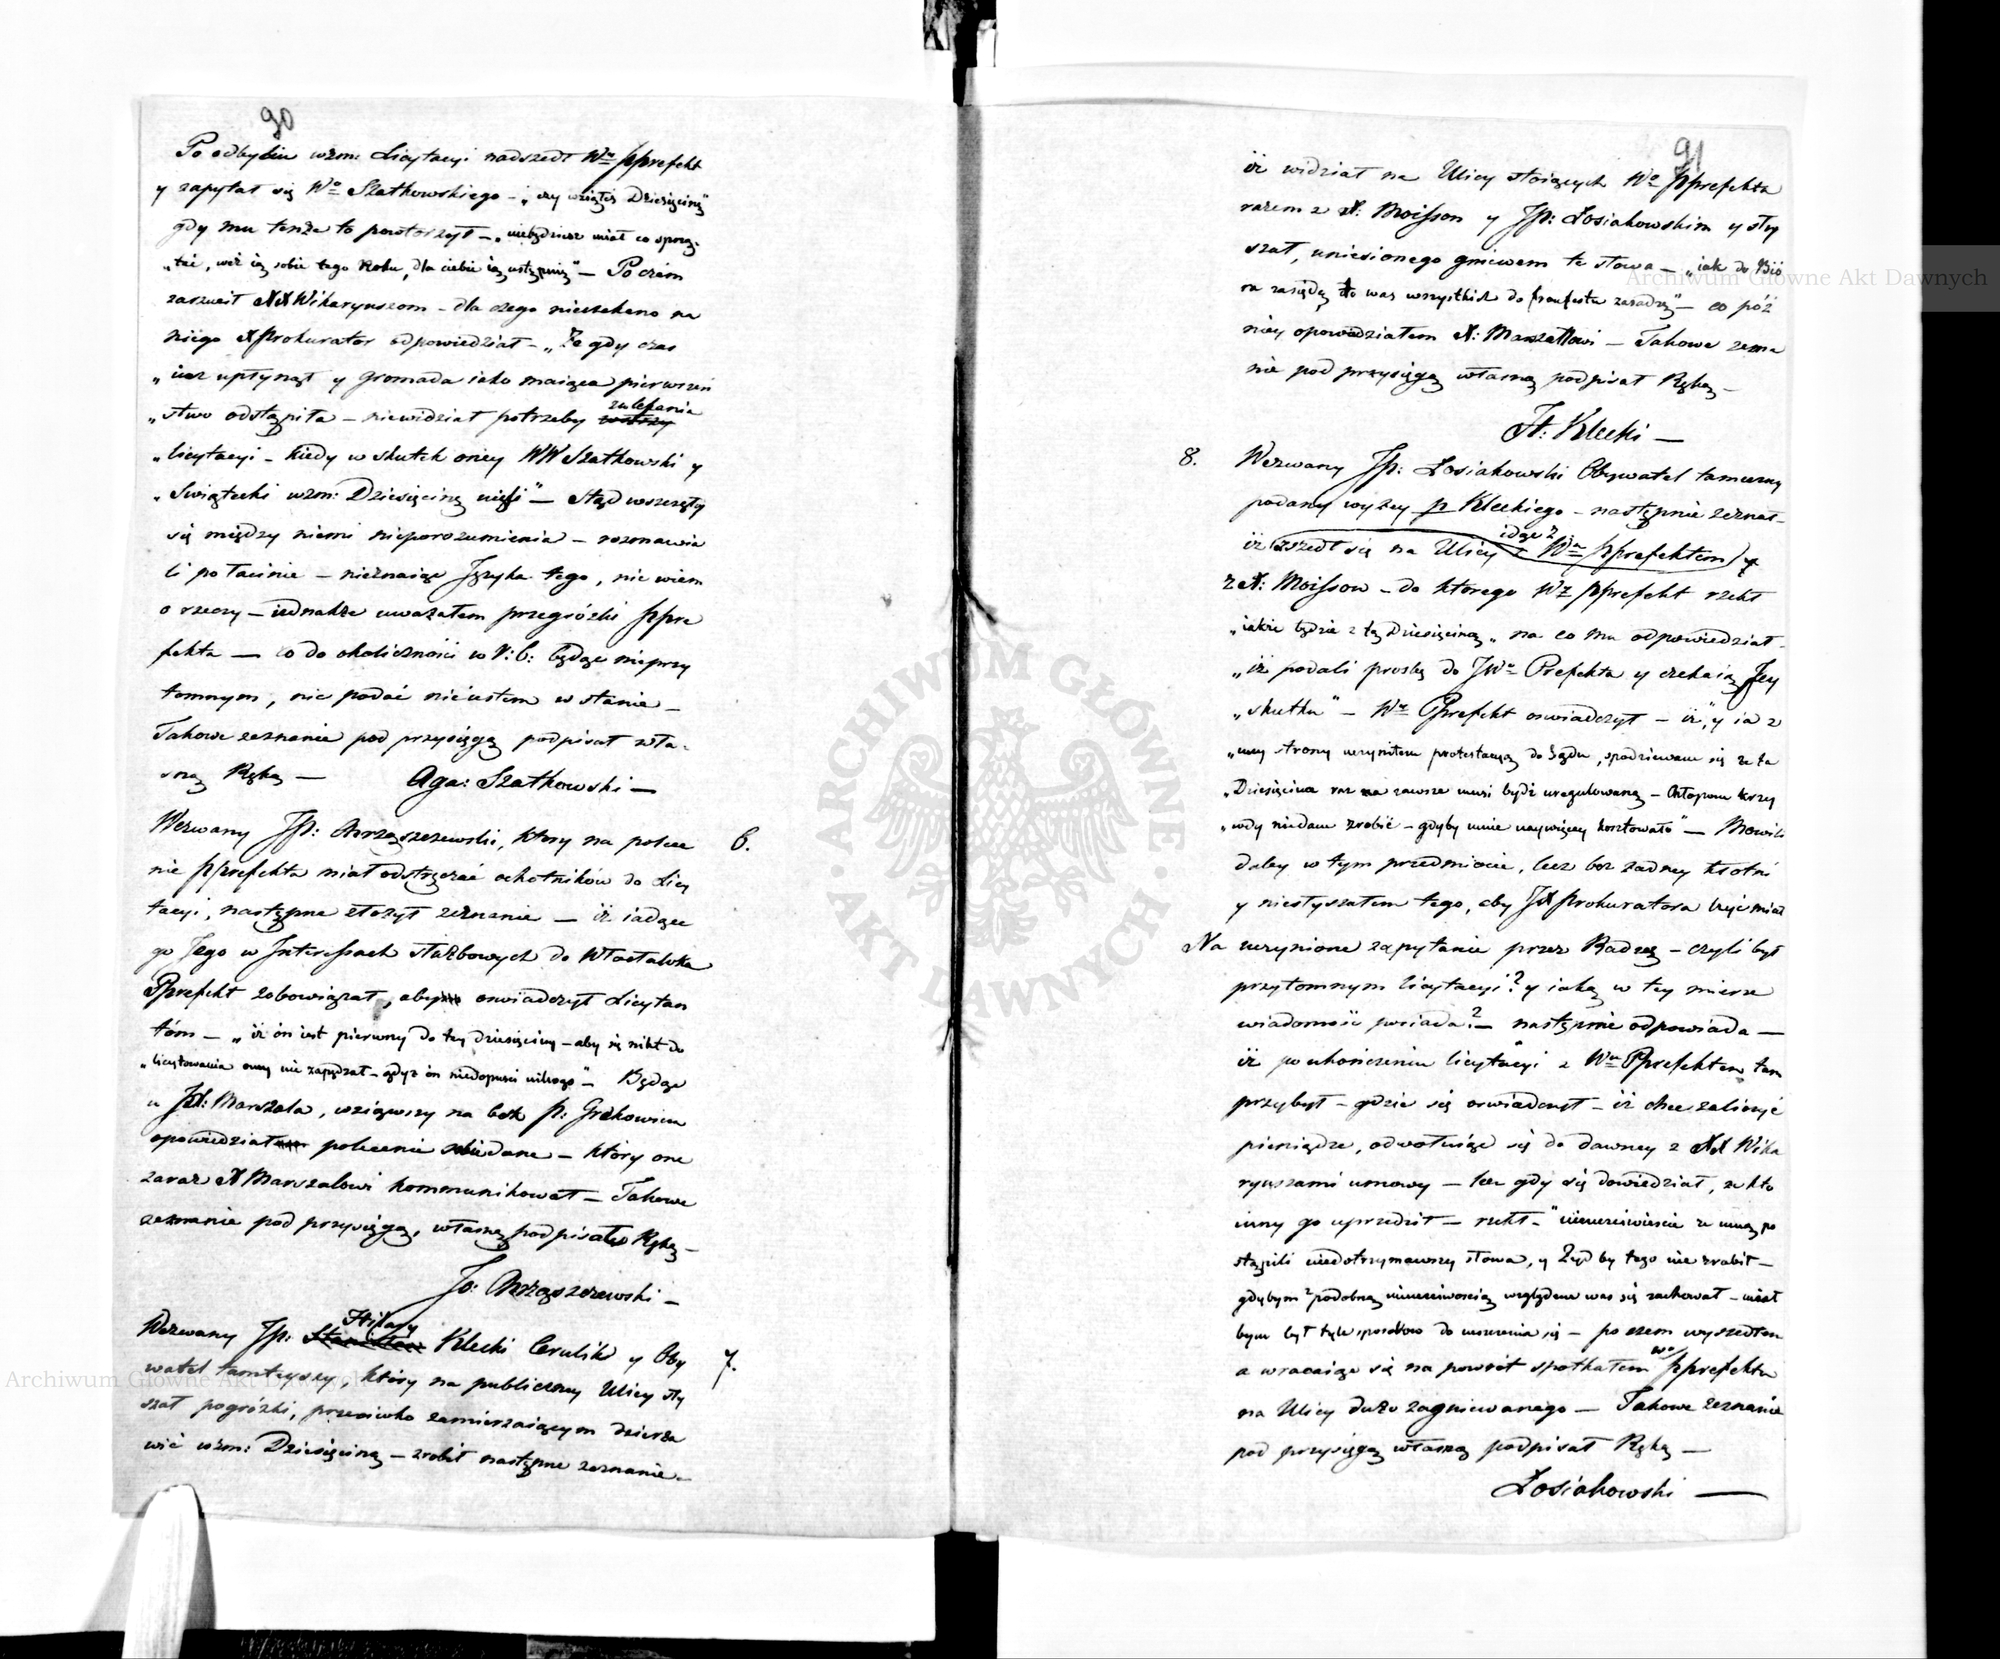 90
Po odbyciu wzm: Licytacyi nadszedł Wn Pprefekt
y zapytał się Wo Szatkowskiego – „czy wziąłeś Dziesięcinę"
gdy mu tenże to powtorzył – „niebędziesz miał co sprzą-
„tać, weź ią sobie tego Roku, dla ciebie ią ustąpię" – Po czém
zarzucił XX Wikaryuszom – dla czego nieczekano na
niego X Prokurator odpowiedział – „Że gdy czas
„iuż upłynął y gromada iako maiąca pierwszeń
„stwo odstąpiła – niewidział potrzeby zwlekania
„licytacyi – kiedy w skutek oney WW Szatkowski y
„Swiątecki wzm: Dziesięcinę wzięli" – Ztąd wszczęły
się między niemi nieporozumienia – rozmawia
li po łacinie – nieznaiąc Języka tego, nie wiem
o rzeczy – iednakże uważałem przegróżki Ppre
fekta – co do okoliczności w N: 6: będąc nieprzy
tomnym, nic podać nieiestem w stanie –
Takowe zeznanie pod przysięgą podpisał wła-
sną Ręką –
Aga: Szatkowski –
Wezwany JP: Chrząszczewski, ktory na polece 6.
nie Pprefekta miał odstręczać ochotników do Licy
tacyi, następne złożył zeznanie – iż iadące
go Jego w Interessach służbowych do Włocławka
Pprefekt zobowiązał, aby oswiadczył Licytan
tóm – „iż ón iest pierwszy do tey dziesięciny – aby się nikt do
„licytowania oney nie zapędzał – gdyż ón niedopuści nikogo" – Będąc
u JX: Marszala, wziąwszy na bok P: Grekowicza
opowiedział polecenie sobie dane – który one
zaraz X Marszalowi kommunikował – Takowe
zeznanie pod przysięgą, własną podpisał Ręką –
Jo: Chrząszczewski –
Hilary
Wezwany JP: Stanisław Klecki Cerulik y Oby 7.
watel tamteyszy, który na publiczney Ulicy sły
szał pogróżki, przeciwko zamierzaiącym dzierża
wić wzm: Dziesięcinę – zrobił następne zeznanie –
91
iż widział na Ulicy stoiących Wo Pprefekta
razem z X: Moisson y JP: Łosiakowskim y sły
szał, uniesionego gniewem te słowa – „iak do Bió
ra zasiędę to was wszystkich do frontfestu zasadzę" – co póź
niey opowiedziałem X: Marszałłowi – Takowe zezna
nie pod przysięgą własną podpisał Ręką –
H: Klecki –
8. Wezwany JP: Łosiakowski Obywatel tameczny
podany wyżey p Kleckiego – następnie zeznał –
idąc z
iż zszedł się na Ulicy z Wm Pprefektem y
z X: Moisson – do ktorego W Pprefekt rzekł
„iakże będzie z tą Dziesięciną „ na co mu odpowiedział –
„iż podali prosbę do JWo Prefekta y czekaią Jey
„skutku" – Wn Pprefekt oswiadczył – iż „y ia z
„mey strony uczyniłem protestacyą do Sądu, spodziewam się że ta
„Dziesięcina raz na zawsze musi bydź uregulowaną – Chłopom krzy
„wdy niedam zrobić – gdyby mnie naywięcey kosztowało" – Mowili
daley w tym przedmiocie, lecz bez żadney kłotni
y niesłyszałem tego, aby JX Prokuratora lżyć miał
Na uczynione zapytanie przez Radzcę – czyli był
przytomnym licytacyi? y iaką w tey mierze
wiadomość posiada? – następnie odpowiada –
iż po ukończeniu licytacyi z Wm Pprefektem tam
przybył – gdzie się oswiadczył – iż chce zaliczyć
pieniądze, odwołuiąc się do dawney z XX Wika
ryuszami umowy – lecz gdy się dowiedział, że kto
inny go uprzedził – rzekł – "nieuczciwieście ze mną po
stąpili niedotrzymawszy słowa, y Żyd by tego nie zrobił –
gdybym z podobną nieuczciwością względem was się zachował – miał
bym był tyle sposobow do mszczenia się – po czem wyszedłem
a wracaiąc się na powrót spotkałem Wo Pprefekta
na Ulicy dużo zagniewanego – Takowe zeznanie
pod przysięgą własną podpisał Ręką –
Łosiakowski –
ARCHIWUM GŁÓWNE AKT DAWNYCH
Archiwum Główne Akt Dawnych
Archiwum Główne Akt Dawnych